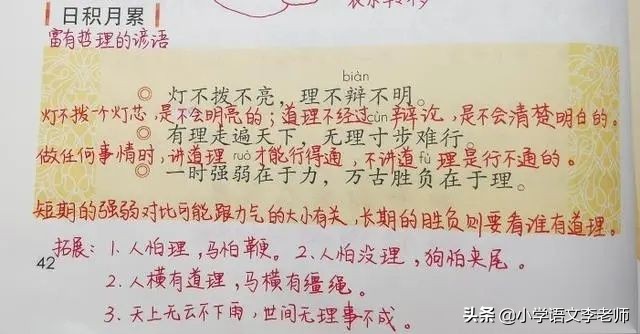 日积月累
富有哲理的谚语
biàn
灯不拨不亮，理不辩不明。
灯不拨一个灯芯，是不会明亮的；道理不经过辩论，是不会清楚明白的。
cùn
有理走遍天下，无理寸步难行。
做任何事情时，讲道理才能行得通，不讲道理是行不通的。
ruò fù
一时强弱在于力，万古胜负在于理。
短期的强弱对比可能跟力气的大小有关，长期的胜负则要看谁有道理。
拓展：1.人怕理，马怕鞭。2、人怕没理，狗怕夹尾。
42
2.人横有道理，马横有缰绳。
3.天上无云不下雨，世间无理事不成。
头条@小学语文李老师